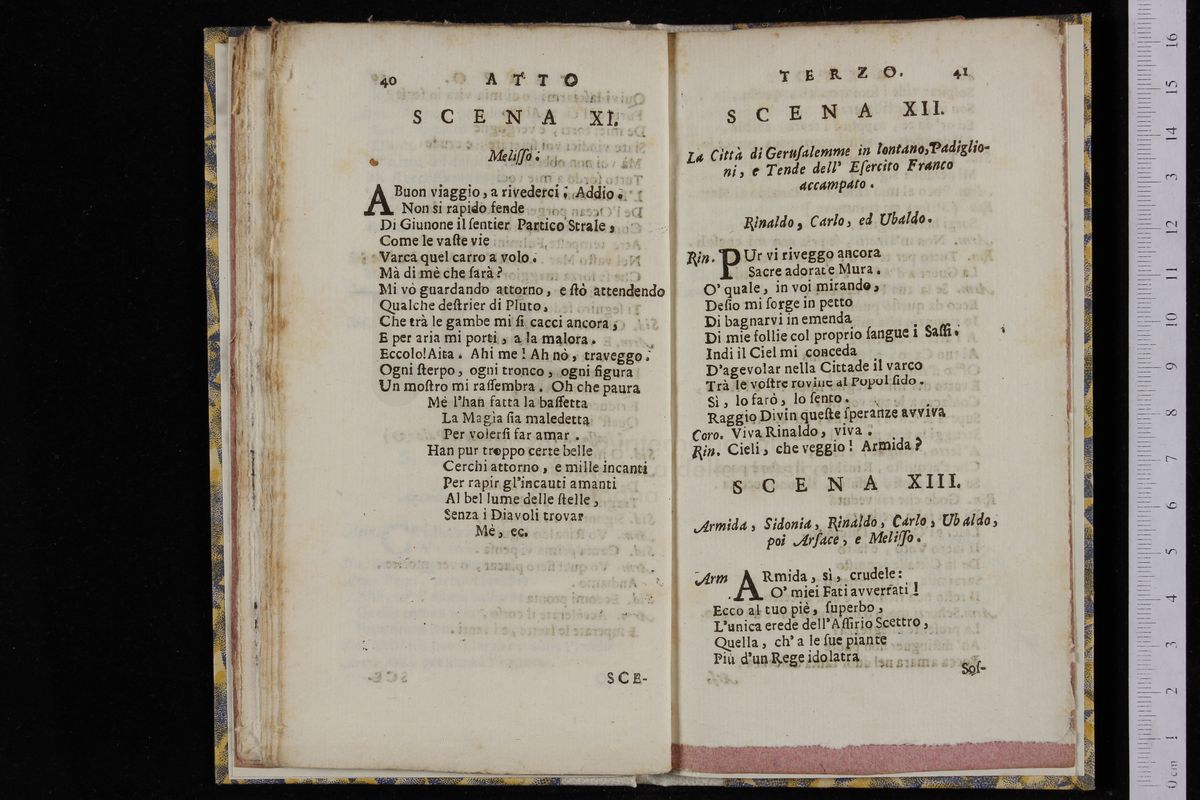 40 ATTO
SCENA XI.
Melisso.
A Buon viaggio, a rivederci; Addio.
Non si rapido fende
Di Giunone il sentier Partico Strale,
Come le vaste vie
Varca quel carro a volo.
Mà di mè che sarà?
Mi vò guardando attorno, e stò attendendo
Qualche destrier di Pluto,
Che trà le gambe mi si cacci ancora,
E per aria mi porti, a la malora.
Eccolo! Aita. Ahi me! Ah nò, traveggo.
Ogni sterpo, ogni tronco, ogni figura
Un mostro mi rassembra. Oh che paura
Mè l'han fatta la bassetta
La Magìa sia maledetta
Per volersi far amar.
Han pur troppo certe belle
Cerchi attorno, e mille incanti
Per rapir gl'incauti amanti
Al bel lume delle stelle,
Senza i Diavoli trovar
Mè, ec.
SCE-
TERZO. 41
SCENA XII.
La Città di Gerusalemme in lontano, Padiglio-
ni, e Tende dell' Esercito Franco
accampato.
Rinaldo, Carlo, ed Ubaldo.
Rin. PUr vi riveggo ancora
Sacre adorate Mura.
O' quale, in voi mirando,
Desio mi sorge in petto
Di bagnarvi in emenda
Di mie follie col proprio sangue i Sassi.
Indi il Ciel mi conceda
D'agevolar nella Cittade il varco
Trà le vostre rovine al Popol fido.
Sì, lo farò, lo sento.
Raggio Divin queste speranze avviva
Coro. Viva Rinaldo, viva.
Rin. Cieli, che veggio! Armida?
SCENA XIII.
Armida, Sidonia, Rinaldo, Carlo, Ubaldo,
poi Arsace, e Melisso.
Arm ARmida, sì, crudele:
O' miei Fati avversati!
Ecco al tuo piè, superbo,
L'unica erede dell'Assirio Scettro,
Quella, ch' a le sue piante
Più d'un Rege idolatra
Sos-